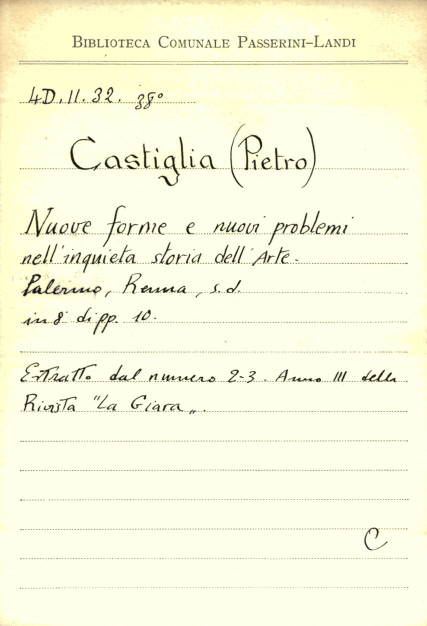 BIBLIOTECA COMUNALE PASSERINI-LANDI
4D.II.32. 38°
Castiglia (Pietro)
Nuove forme e nuovi problemi
nell'inquieta storia dell'Arte.
Palermo, Renna, s.d.
in 8° di pp. 10.
Estratto dal numero 2-3. Anno III della
Rivista "La Giara„.
C